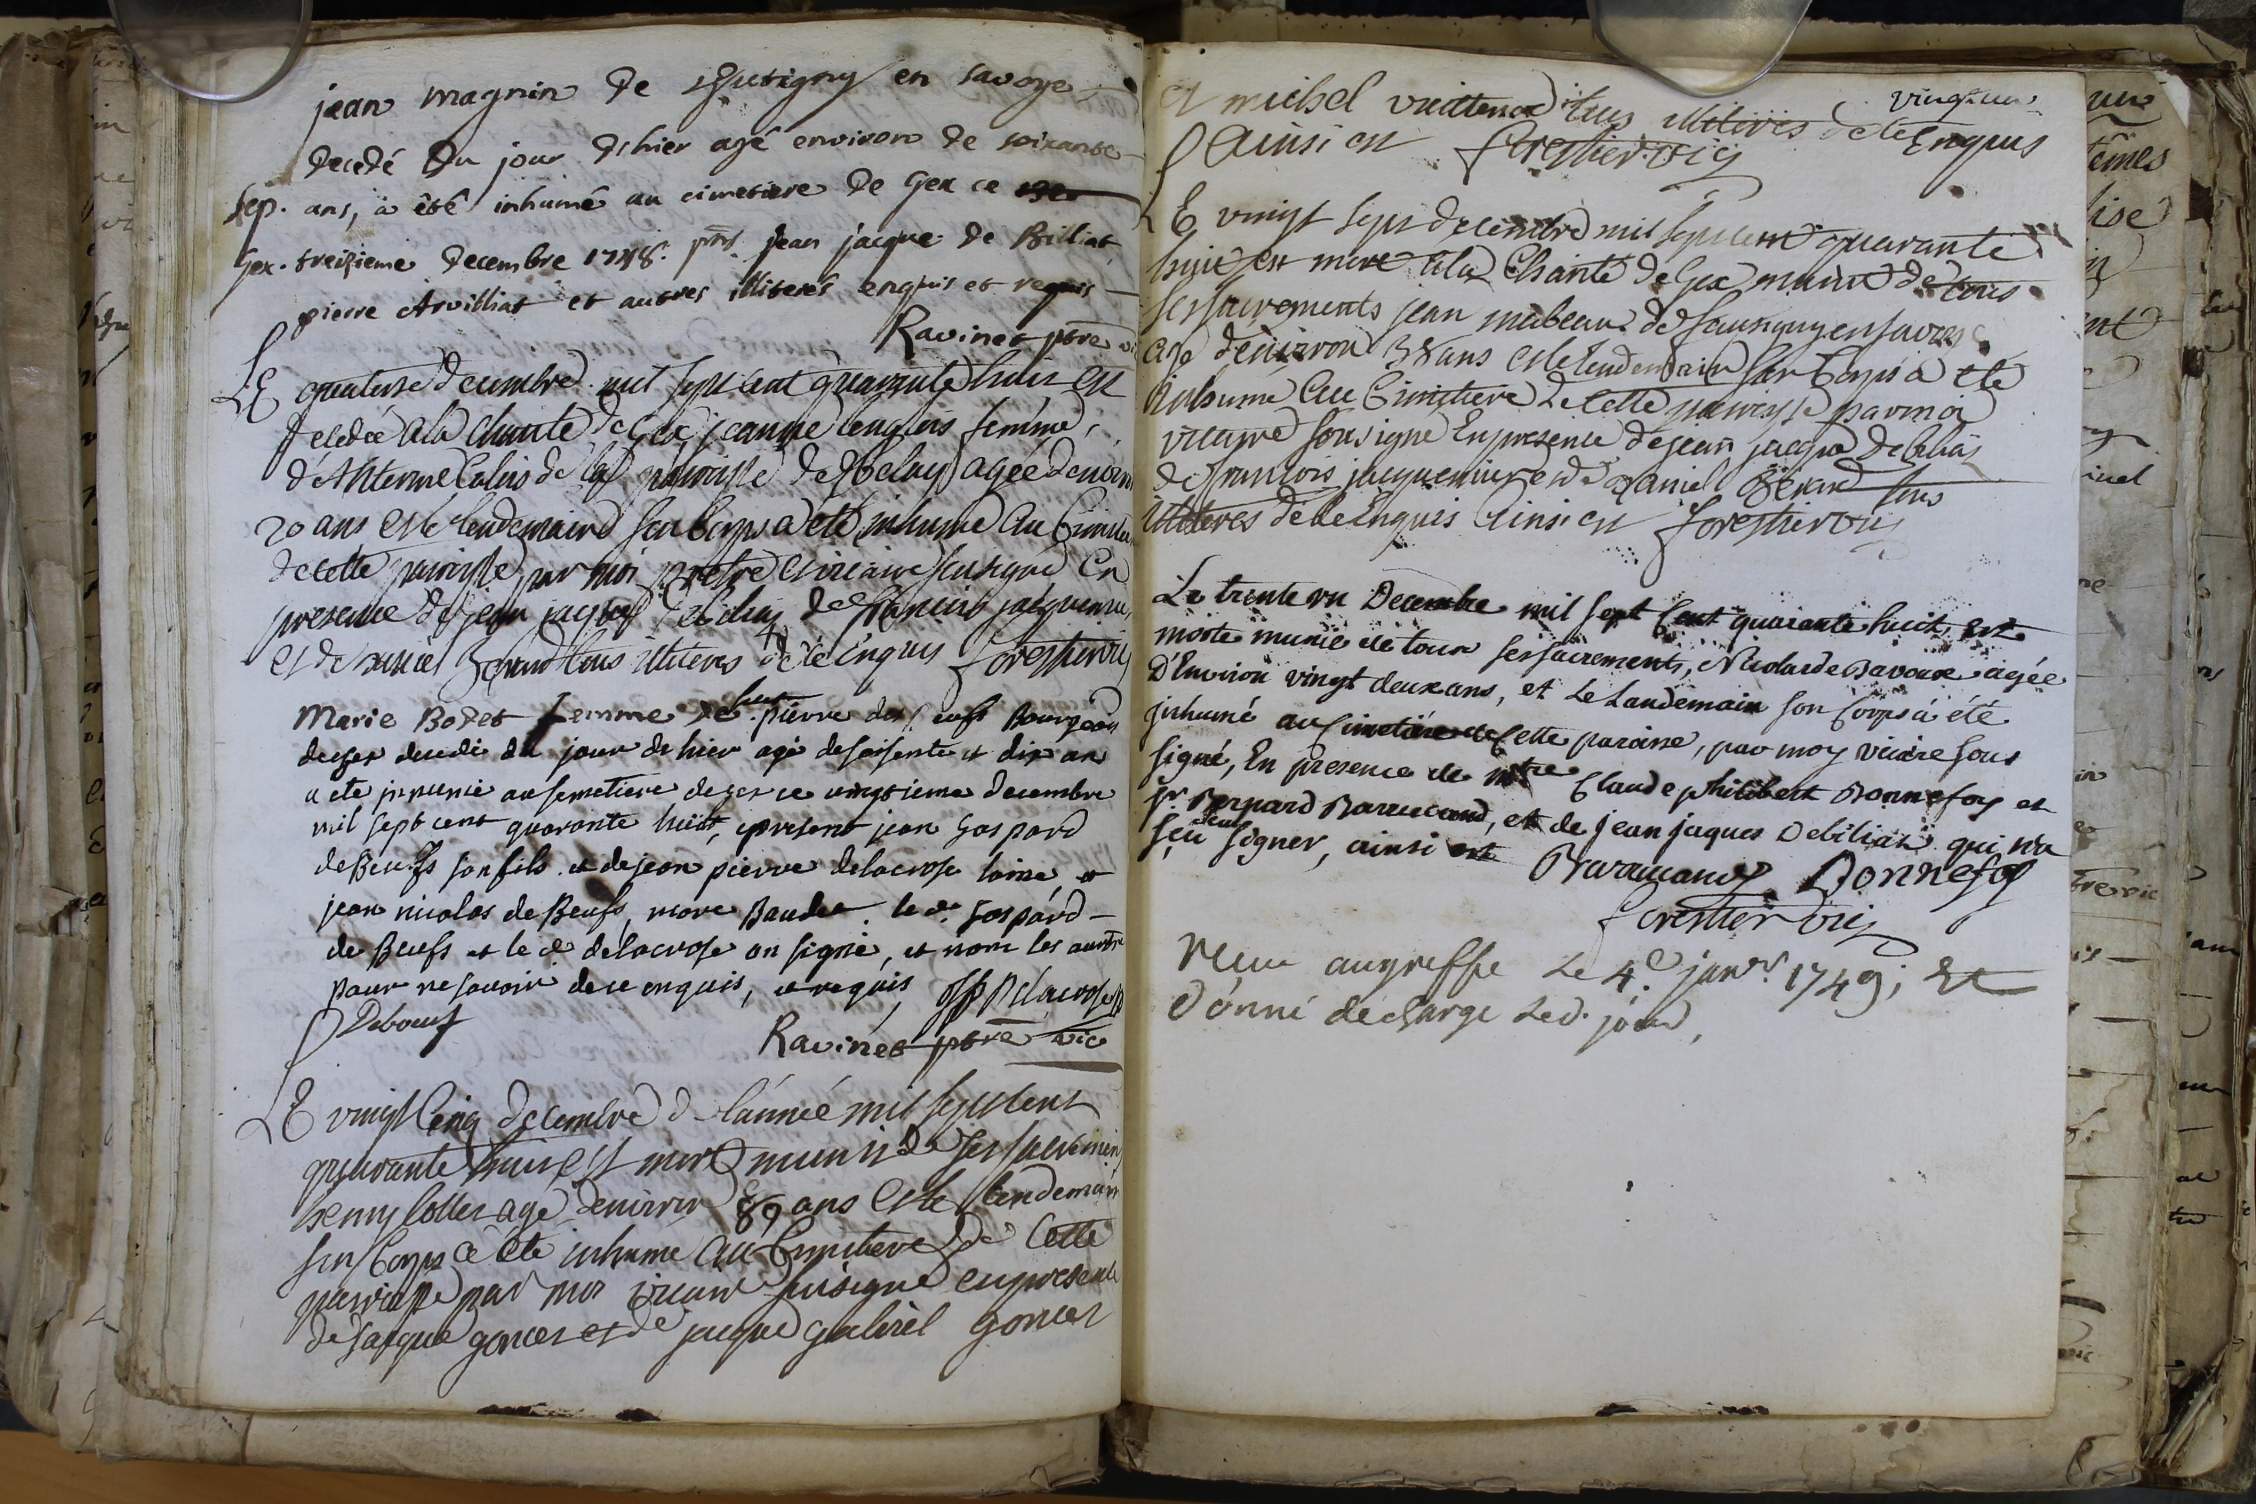 jean magnin de en savoye
decedé du jour d'hier agé environ de soixante
Sep. ans, à êté inhumé au cimetiere de Gex ce
Gex. treizieme decembre 1748. pnt jean jacque de Billiat
pierre Arvilliat et autres illiterés enquis et requis
Ravinet ptre vi
LE quatorse decembre mil sept cent quarante huit est
decedée a la charité de Gex jeanne longlois femme
d'Antenne Colins de la paroisse de agée denviron
20 ans et le lendemain son corps a eté inhumé au Cimitiere
de cette paroisse par moi pretre et vicaire sousigné en
presence de jean jacque debiliaz de francois jacquemier
et de daniel Berard tous illiteres de ce Enquis forestier vic
Marie Bodet femme de feu pierre des beufs Bourgeois
de gex decedé du jour d'hier agé de soisente et dix an
a ete innumé au semetiere de gex ce vingtieme decembre
mil sept cent quarante huit, present jean Gaspard
deBeufs son fils et de jean pierre delacrose laine, et
jean nicolas de Beufs, marc Baudet. le dt. Gaspard
de Beufs et le d delacrose on signé, et nom les autre
pour ne savoir de ce enquis, et requis JPDelacrose
Deboeuf
Ravinet ptre vic
LE vingt Cinq decembre de lánnée mil sept cent
quarante huit est mort muni de ses sacremen
hemy agé denviron 89 ans et le lendemain
son Corps a été inhume au Cimitiere de Cette
paroisse par moi vicaire sousigné en presence
de jacque goncet et de jacque gabriel goncet
vingt un
et michel tous illiteres de ce Enquis
Ainsi est forestier vic
LE vingt sept decembre mil sept cent quarante
huit est mort a la Charité de Gex muni de tous
ses sacrements jean mabeau de faussigny en savoye
agé d'environ 38 ans et le lendemain son Corps a été
inhumé au Cimitiere de Cette paroisse par moi
vicaire sousigné En presence de jean jacque debiliaz
de francois jacquemier et de daniel Berard tous
illiteres de ce Enquis Ainsi est forestier vic
Le trente un Decembre mil sept Cent quarante huit, est
morte munie de tous ses sacrements, Nicolarde Bavoux agée
D'Environ vingt deux ans, et Le Landemain son Corps à été
inhumé au Cimetiére de Cette paroisse, par moy vicaire sous
signé, En presence de mtre Claude philibert Bonnefoy et
Sr Bernard Baraucand, et de jean jaques Debiliaz qui n'a
sçu signer, ainsi est Baraucand Bonnefoy
forestier vic
Reçu au greffe Le 4e. janvr. 1749; Et
Donné décharge Led. jour,